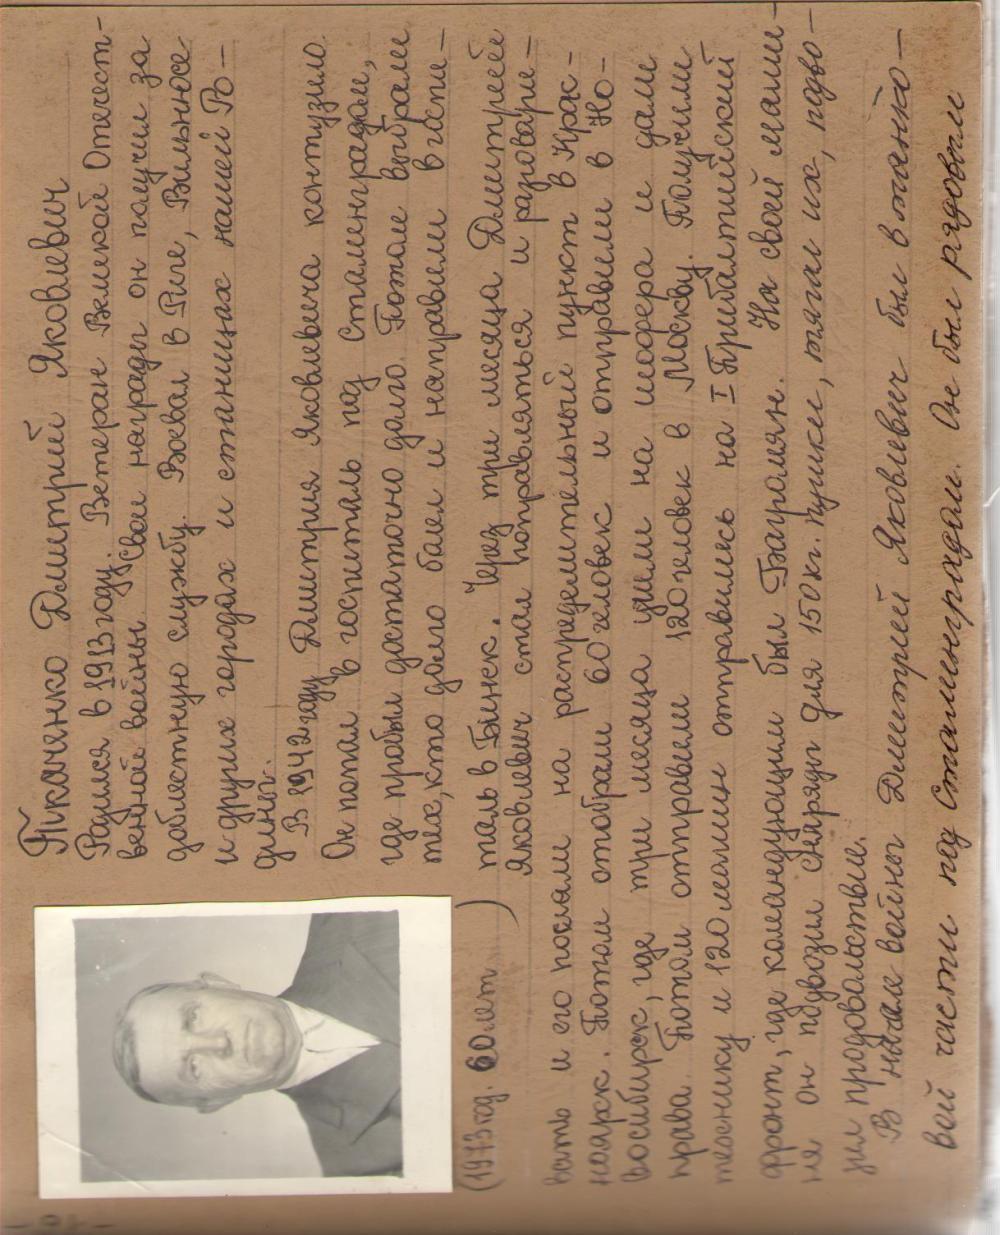 Ткаченко Дмитрий Яковлевич
Родился в 1913 году. Ветеран Великой Отечест-
венной войны. Свои награды он получил за
доблестную службу. Воевал в Риге, Вильнюсе
и других городах и станицах нашей Ро-
дины.
В 1942 году Дмитрия Яковлевича контузило.
Он попал в госпиталь под Сталинградом,
где пробыл достаточно долго. Потом выбрали
тех, кто долго болел и направили в госпи-
таль в Бийск. Через три месяца Дмитрий
Яковлевич стал поправляться и разговари-
(1973 год. 60 лет)
вать и его послали на распределительный пункт в Крас-
ноярск. Потом отобрали 60 человек и отправили в Но-
восибирск, где три месяца учили на шофера и дали
права. Потом отправили 120 человек в Москву. Получили
технику и 120 машин отправились на I Прибалтийский
фронт, где командующим был Баграмян. На своей маши-
не он подвозил снаряды для 150 кг. пушки, тягал их, подво-
зил продовольствие.
В начале войны Дмитрий Яковлевич был в танко-
вой части под Сталинградом. Он был рядовым